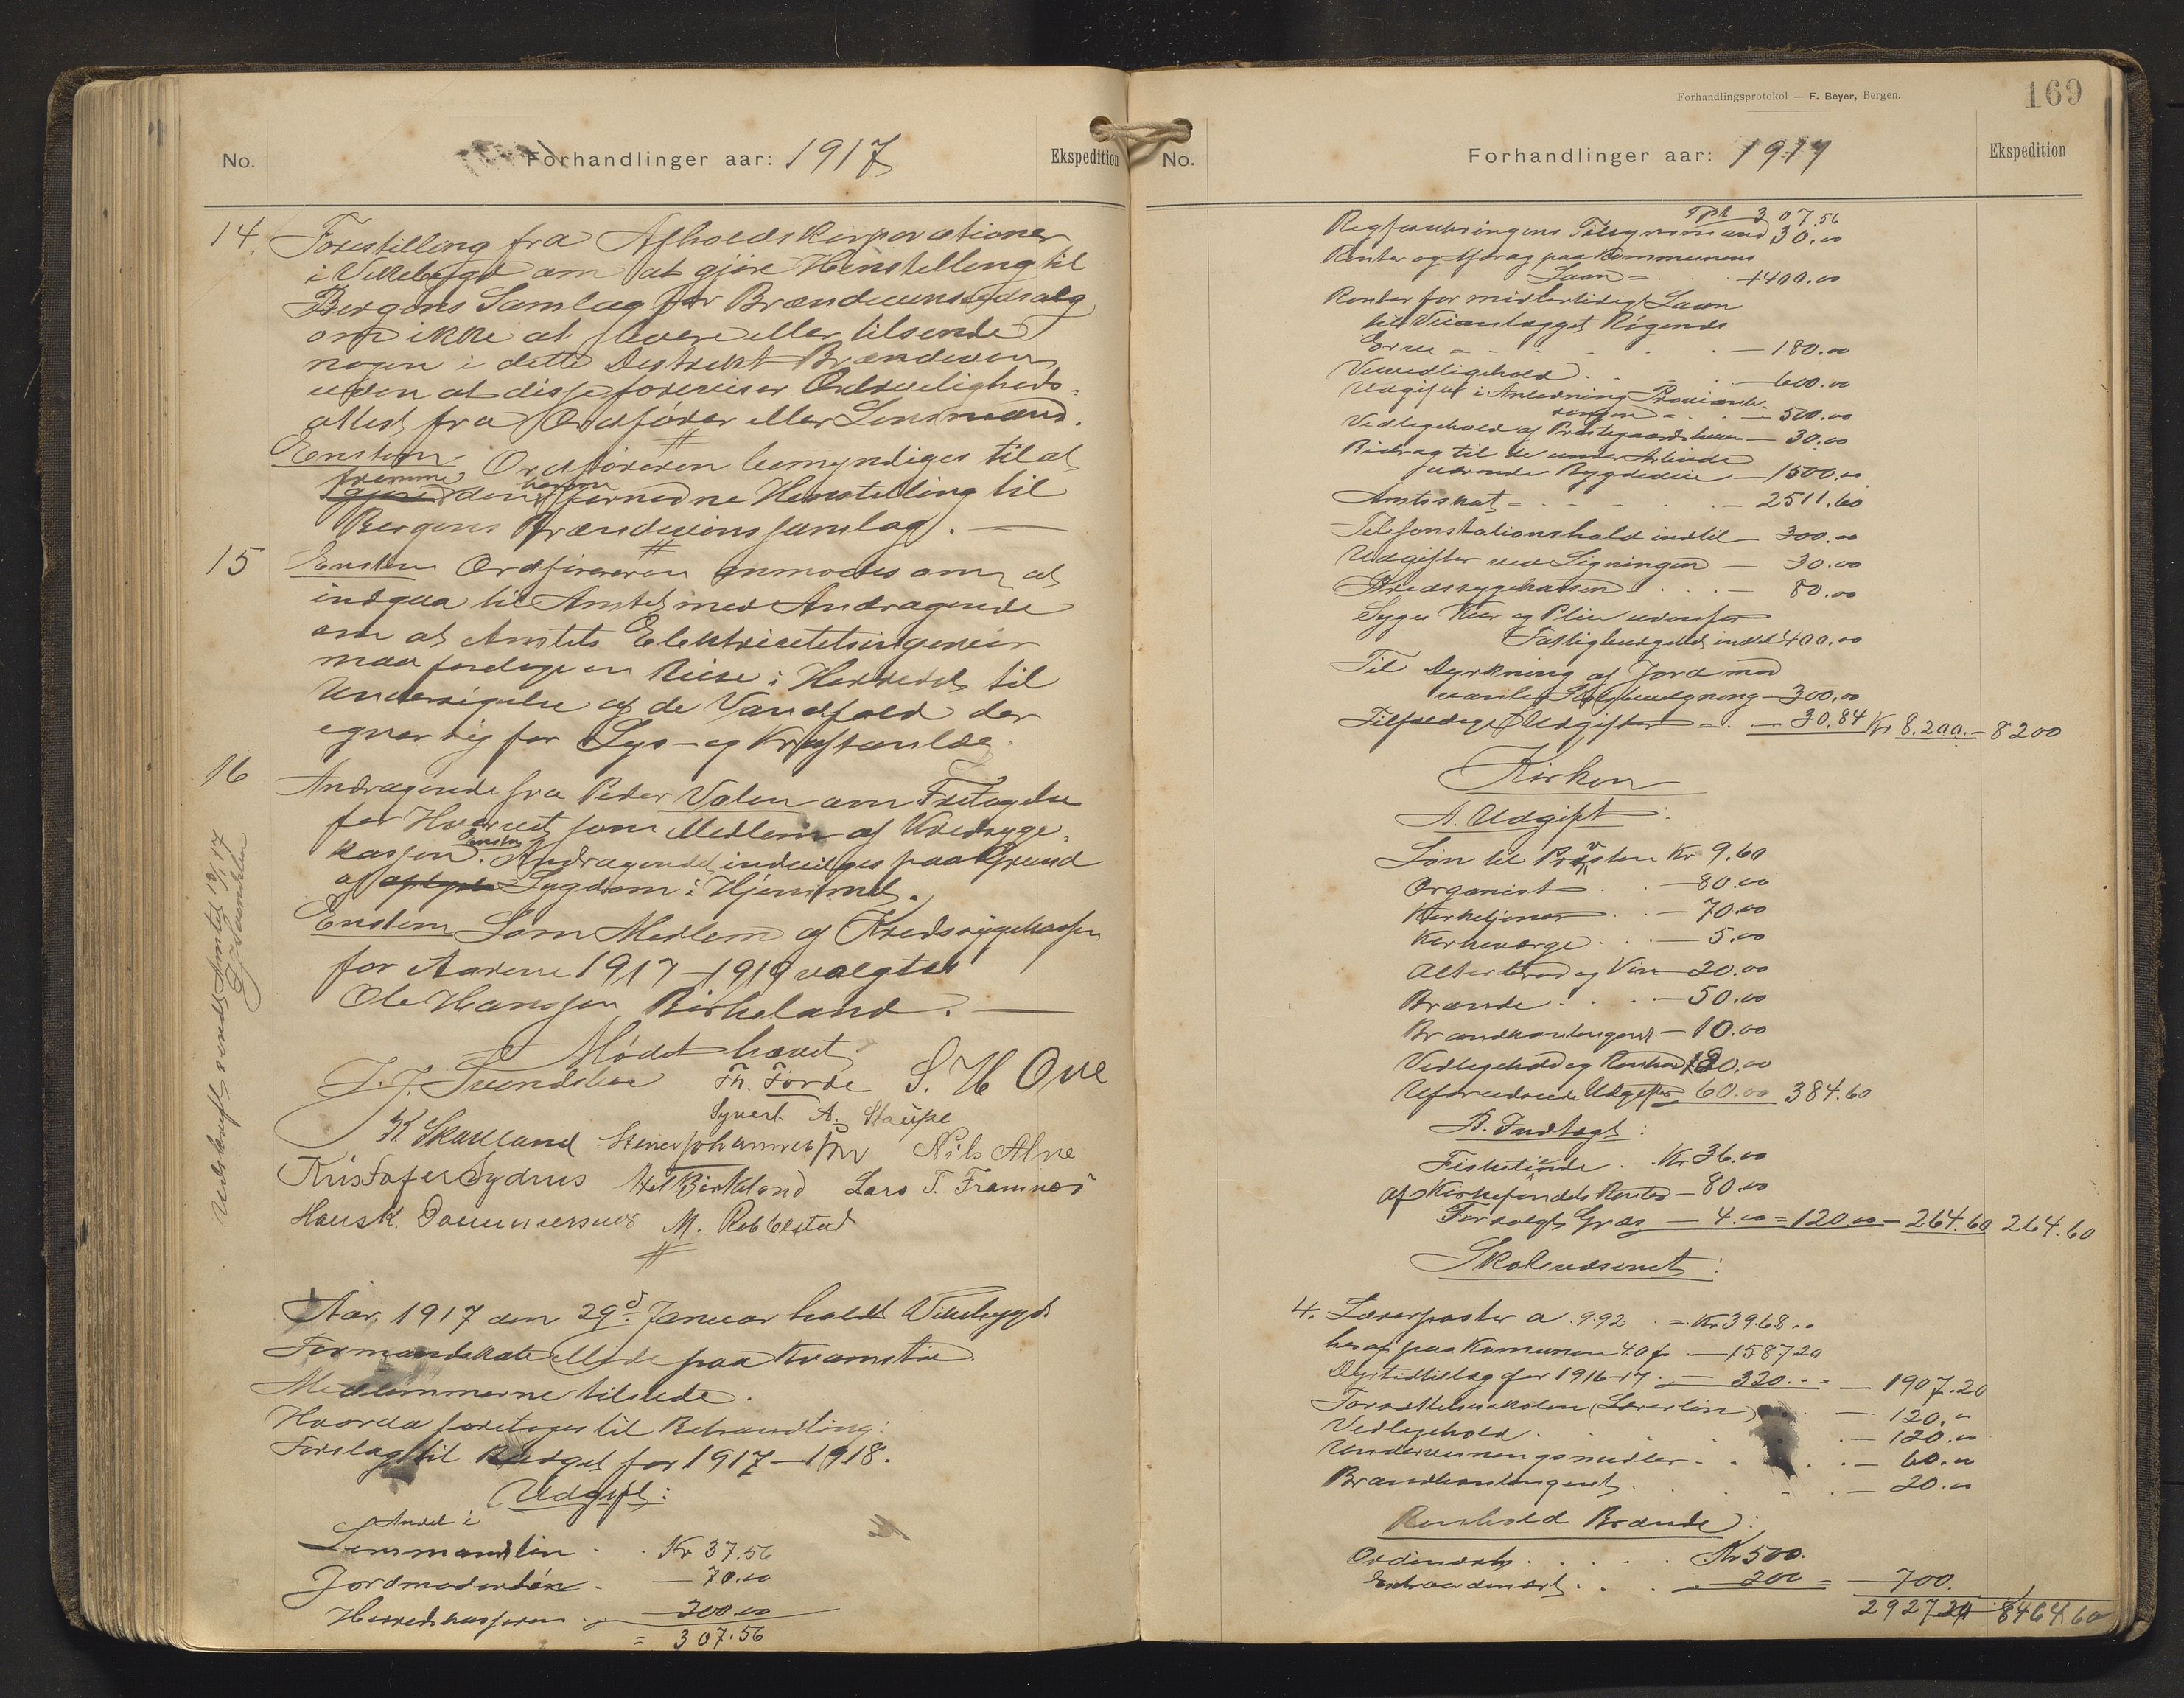 No.
Forhandlinger aar: 1917
Ekspedition
14. Forestilling fra Afholdskorporationer
i Vikebygd om at gjøre Henstilling til
Bergens Samlag for Brændevinsudsalg
om ikke at levere eller tilsende
nogen i dette Destrikt Brændevin
uden at disse foreviser Ædrueligheds-
attest fra Ordfører eller Lensmand.
Enstem. Ordføreren bemyndiges til at
fremme
gjøre den fornødne Henstelling til
Bergens Brændevinssamlag. —
15 Enstem Ordføreren anmodes om at
indgaa til Amtet med Andragende
om at Amtets Elektricitetsingeniør
maa foretage en Reise i Herredet til
Undersøgelse af de Vandfald der
egner sig for Lys- og Kraftanlæg.
16 Andragende fra Peder Valen om Fritagelse
for Hvervet som Medlem af Kredssyge-
kassen. Enstem Andragendet indvilges paa Grund
af Sygdom i Hjemmet.
Enstem Som Medlem af Kredssygekassen
for Aarene 1917–1919 valgtes
Ole Hansen Birkeland. —
Udskrift sendt Amtet 13/2 17
J Svendsbøe
Mødet hævet
J. J. Svendsbøe Th. Førde S. H Ove
Syvert A. Staupe
K Skauland Stener Johannessen Nils Alne
Kristofer Sydnes Birkeland Lars T. Framnes
Hans K. M. Røbbelstad
Aar. 1917 den 29d. Januar holdt Vikebygd
Formandskab Møde paa Kvamstø.
Medlemmerne tilstede.
Hvorda foretoges til Behandling:
Forslag til Budget for 1917–1918.
Udgift:
Andel i
Lensmandsløn . . Kr 37.56
Jordmoderløn . — 70.00
Herredskasseren . — 200.00
= 307.56
Forhandlingsprotokol — F. Beyer, Bergen.
169
No.
Forhandlinger aar: 1917
Ekspedition
Tpt 307.56
Regnskabs Tilsynsmand 30.00
Renter og Afdrag paa Kommunens
Laan = . . +400.00
Renter for midlertidigt Laan
til Veianlægget Røgenæs
. . — 180.00
Veivedligehold . . — 600.00
Udgifter i Anledning Provianter-
ingen = . . — 500.00
Vedligehold af Prestegaardshuse — 30.00
Bidrag til de under Arbeide
værende Bygdeveie — 1500.00
Amtsskat = - - - — 2511.60
Telefonstationshold indtil — 300.00
Udgifter ved Ligningen — 30.00
Kredssygekassen . . . — 80.00
Syges Kur og Pleie udenfor
Fattigbudgettet indtil 400.00
Til Dyrkning af Jord mod
vanlig — 300.00
Tilfældige Udgifter = . — 30.84 Kr 8.200.— 8200
Kirken
A. Udgift:
Løn til Præsten Kr 9.60
Organist . . — 80.00
Kirketjener . . — 70.00
Kirkeværge . . . — 5.00
Alterbrød og Vin — 20.00
Brænde . . . . — 50.00
Brandkontingent — 10.00
Vedligehold og Renhold 80.00
Uforudseede Udgifter 60.00 384.60
B. Indtægt:
Fisketiende . . Kr 36.00
af Kirkefondets Renter — 80.00
For solgt Græs — 4.00 = 120.00 — 264.60 264.60
Skolevæsenet:
4. Lærerposter a 992 . = Kr 3968 ..
heraf paa Kommunen 40 % . — 1587 20
Dyrtidtillæg for 1916–17 . — 320 . - - — 1907.20
Forsættelsesskolen (Lærerløn) . — 120.00
Vedligehold . . — 120.00
Undervisningsmidler . . — 60.00
Brandkontingent . . — 20.00
Renhold Brænde:
Ordinært . . . . . Kr 500.
Extraordinært . . . — 200 = 700.
2927.20 8464.60